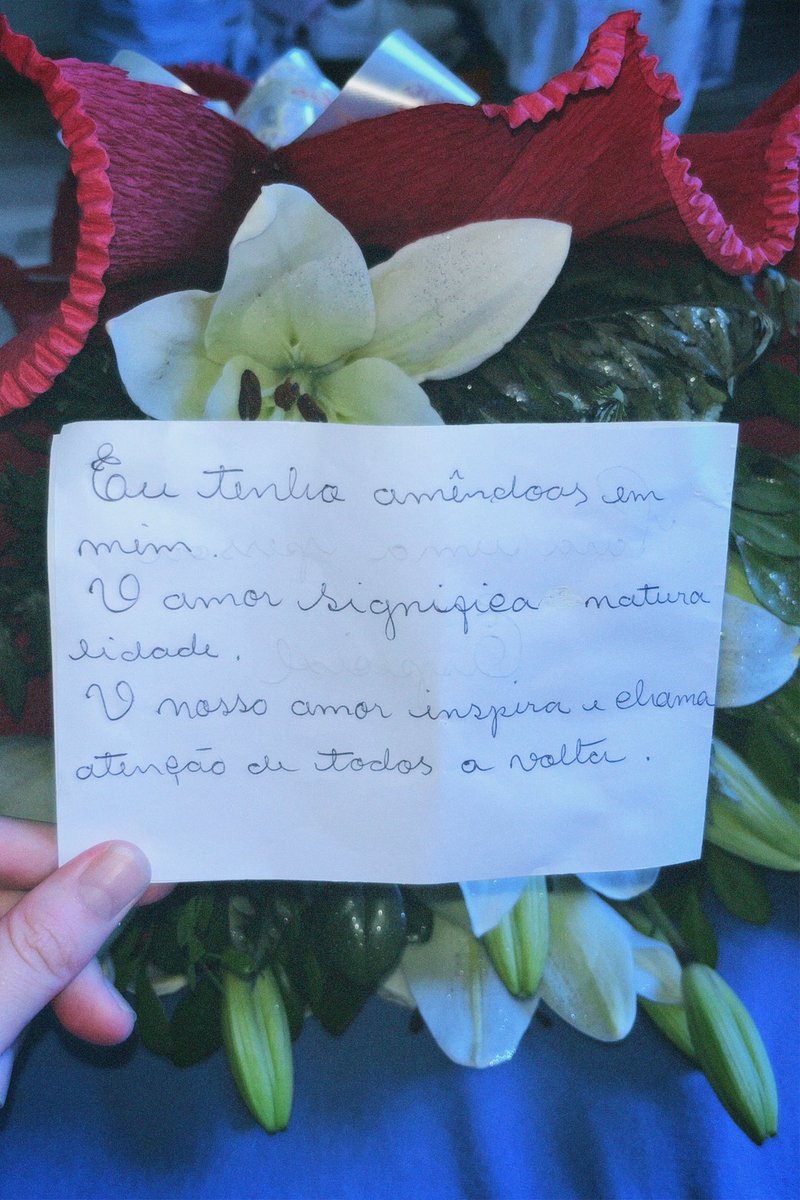 Eu tenho amêndoas em
mim.
O amor significa natura
lidade.
O nosso amor inspira e chama
atenção de todos a volta.